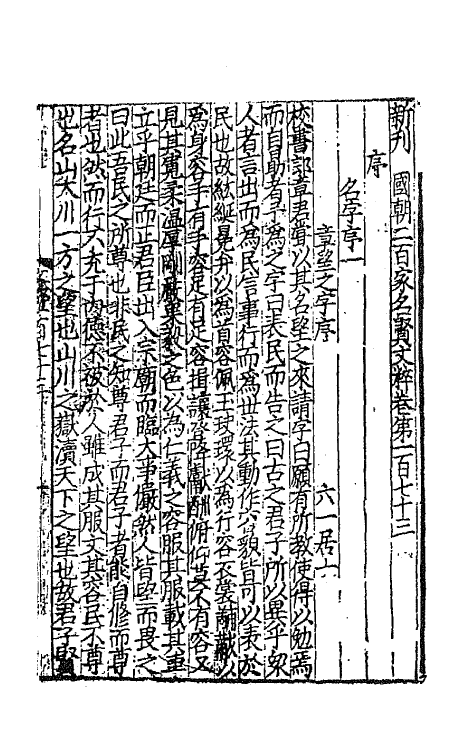 新刊　國朝二百家名賢文粹卷第一百七十三
序
名字序一
章望之字序　六一居士
校書郎章君嘗以其名望之來請字曰願有所教使得以勉焉
而自勗者予爲之字曰表民而告之曰古之君子所以異乎衆
人者言出而爲民信事行而爲世法其動作容貌皆可以表於
民也故紘綖冕弁以爲首容佩玉玦環以為行容衣裳黼黻以
爲身容手有手容足有足容揖讓登降獻酬俯仰莫不有容又
見其寬柔温厚剛嚴果毅之色以為仁義之容服其服載其車
立乎朝廷而正君臣出入宗廟而臨大事儼然人皆望而畏之
曰此吾民之所尊也非民之知尊君子而君子者能自修而尊
者也然而行不充于內德不被於人雖成其服文其容民不尊
也名山大川一方之望也山川之嶽瀆天下之望也故君子賢